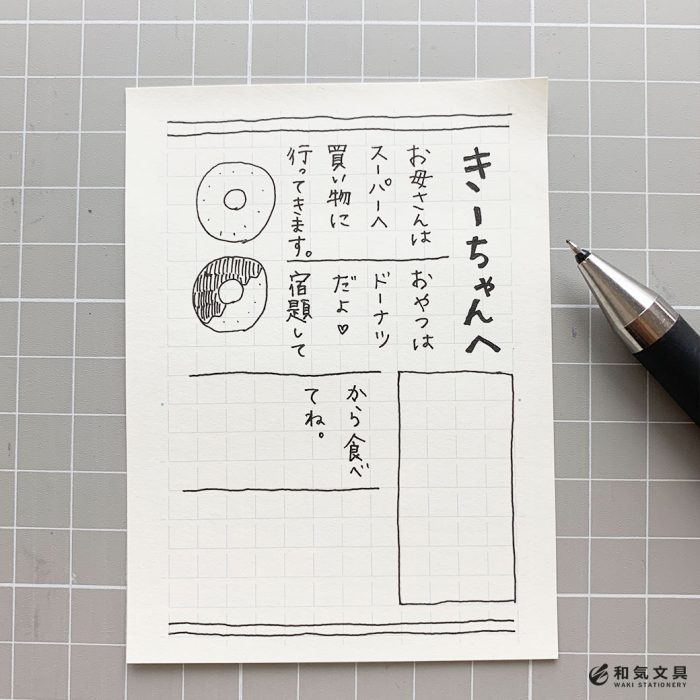 きーちゃんへ
お母さんは
スーパーへ
買い物に
行ってきます。
おやつは
ドーナツ
だよ♥
宿題して
から食べ
てね。
和気文具
WAKI STATIONERY